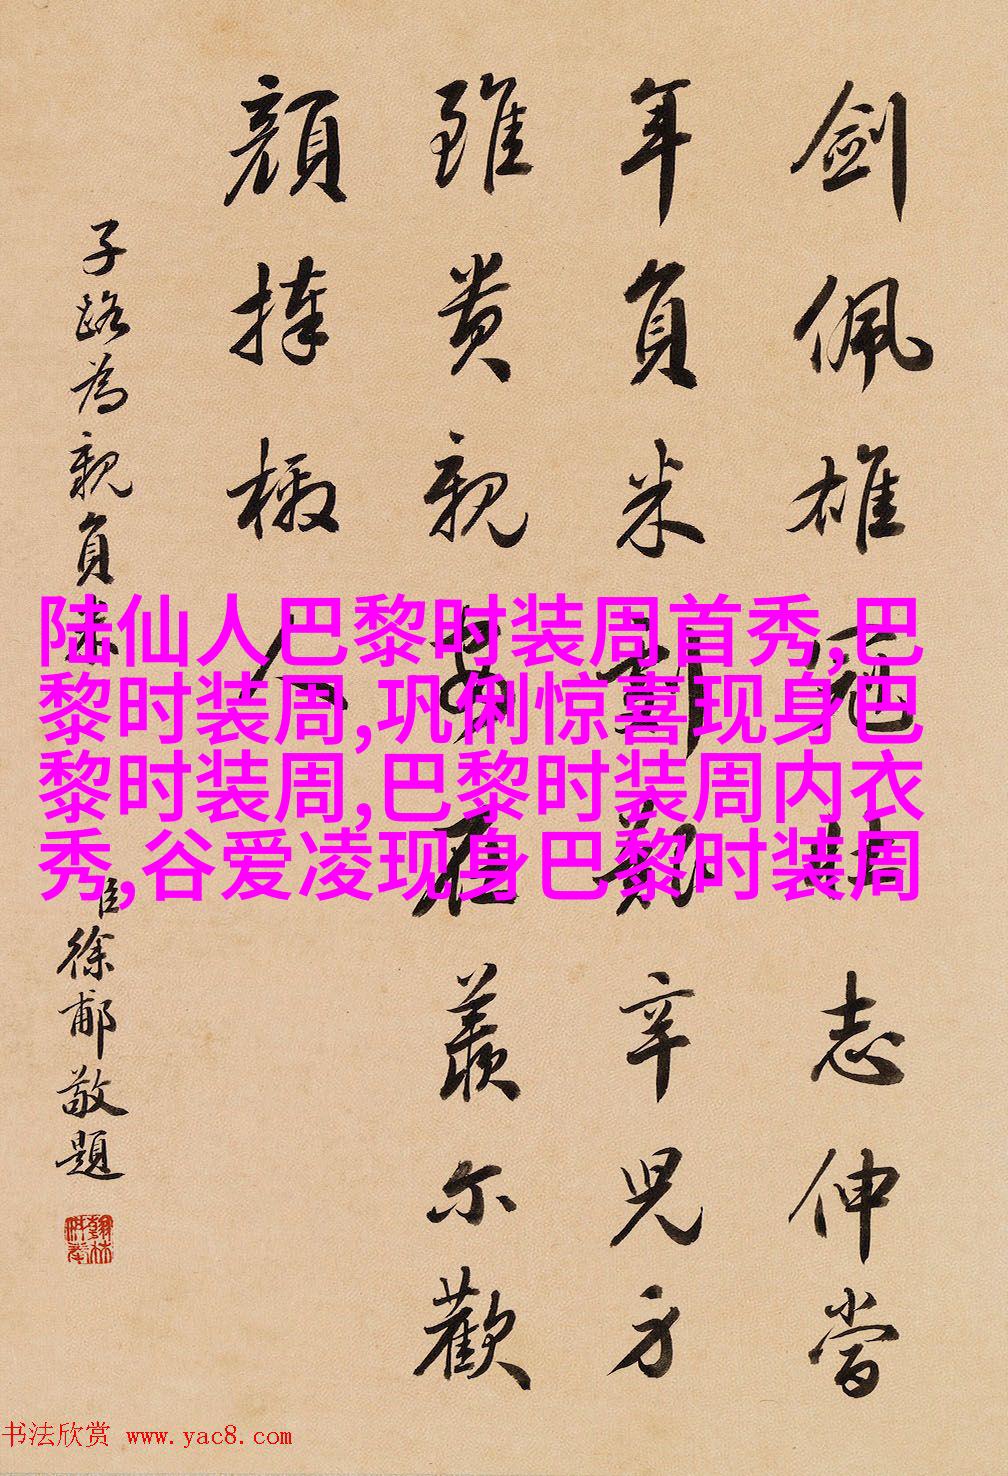 劍佩雄冠志伸當
年負米辛兒方
雖貴親安在羨爾歡
顏捧檄人
子路為親負米
臣徐郙敬題
陆仙人巴黎时装周首秀,巴
黎时装周,巩俐惊喜现身巴
黎时装周,巴黎时装周内衣
秀,谷爱凌现身巴黎时装周
书法欣赏 www.yac8.com